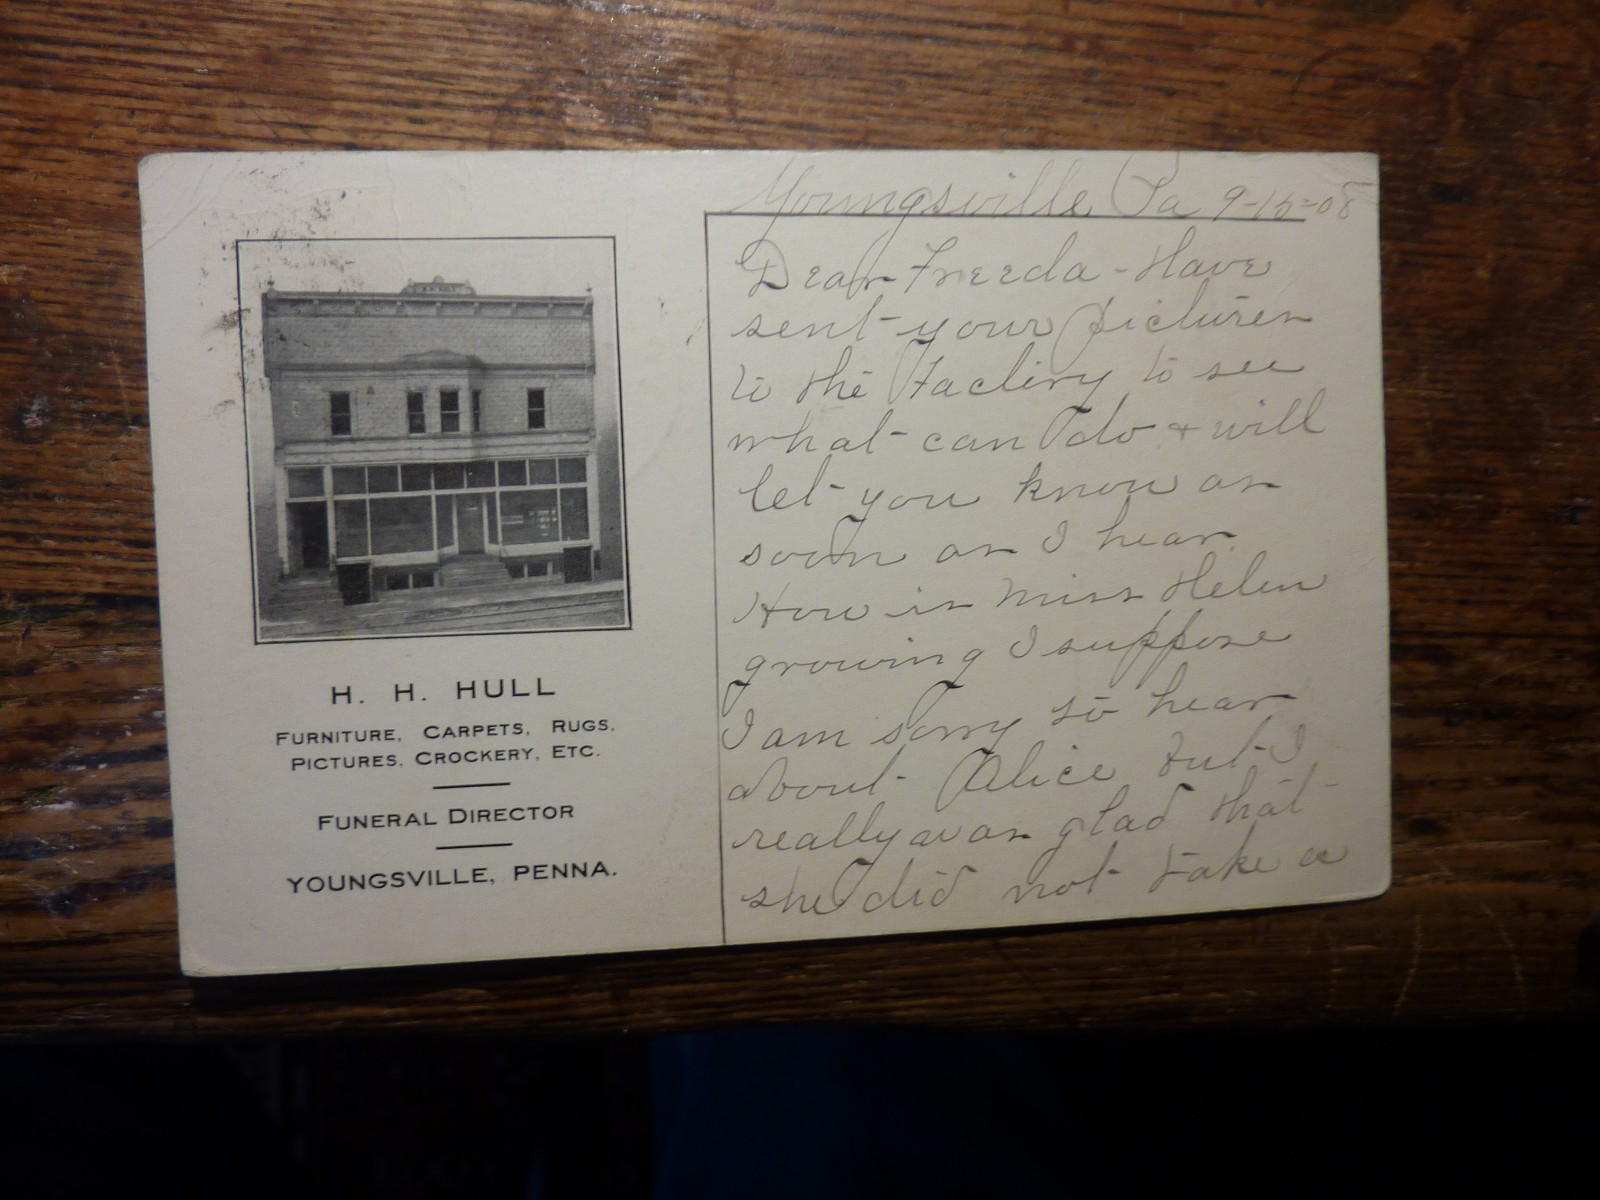 H. H. HULL
FURNITURE, CARPETS, RUGS,
PICTURES, CROCKERY, ETC.
FUNERAL DIRECTOR
YOUNGSVILLE, PENNA.
Youngsville, Pa 9-15-08
Dear Freeda - Have
sent your pictures
to the Factory to see
what can do + will
let you know as
soon as I hear.
How is Miss Helen
growing I suppose
I am sorry to hear
about Alice but I
really was glad that
she did not take a